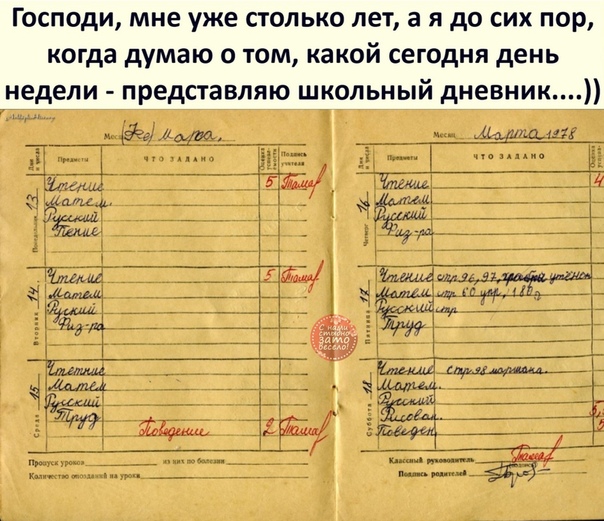 Господи, мне уже столько лет, а я до сих пор,
когда думаю о том, какой сегодня день
недели - представляю школьный дневник....))
(Не) Марта.
Предметы
ЧТО ЗАДАНО
Подпись учителя
13
Понедельник
Чтение 5
Матем.
Русский
Пение
14
Вторник
Чтение 5
Матем
Русский
Физ-ра
15
Среда
Чтение
Матем
Русский
Труд
Поведение 2
Пропуск уроков из них по болезни
Количество опозданий на урока
С нами
стыдно
зато
весело!
Месяц Марта 1978
Предметы
ЧТО ЗАДАНО
16
Четверг
Чтение 4
Матем.
Русский
Физ-ра
17
Пятница
Чтение стр. 96, 97,
Матем стр 60 упр,
Русский стр
Труд
18
Суббота
Чтение стр 98
Матем.
Русский
Рисован. 5
Поведен. 5
Классный руководитель
Подпись родителей